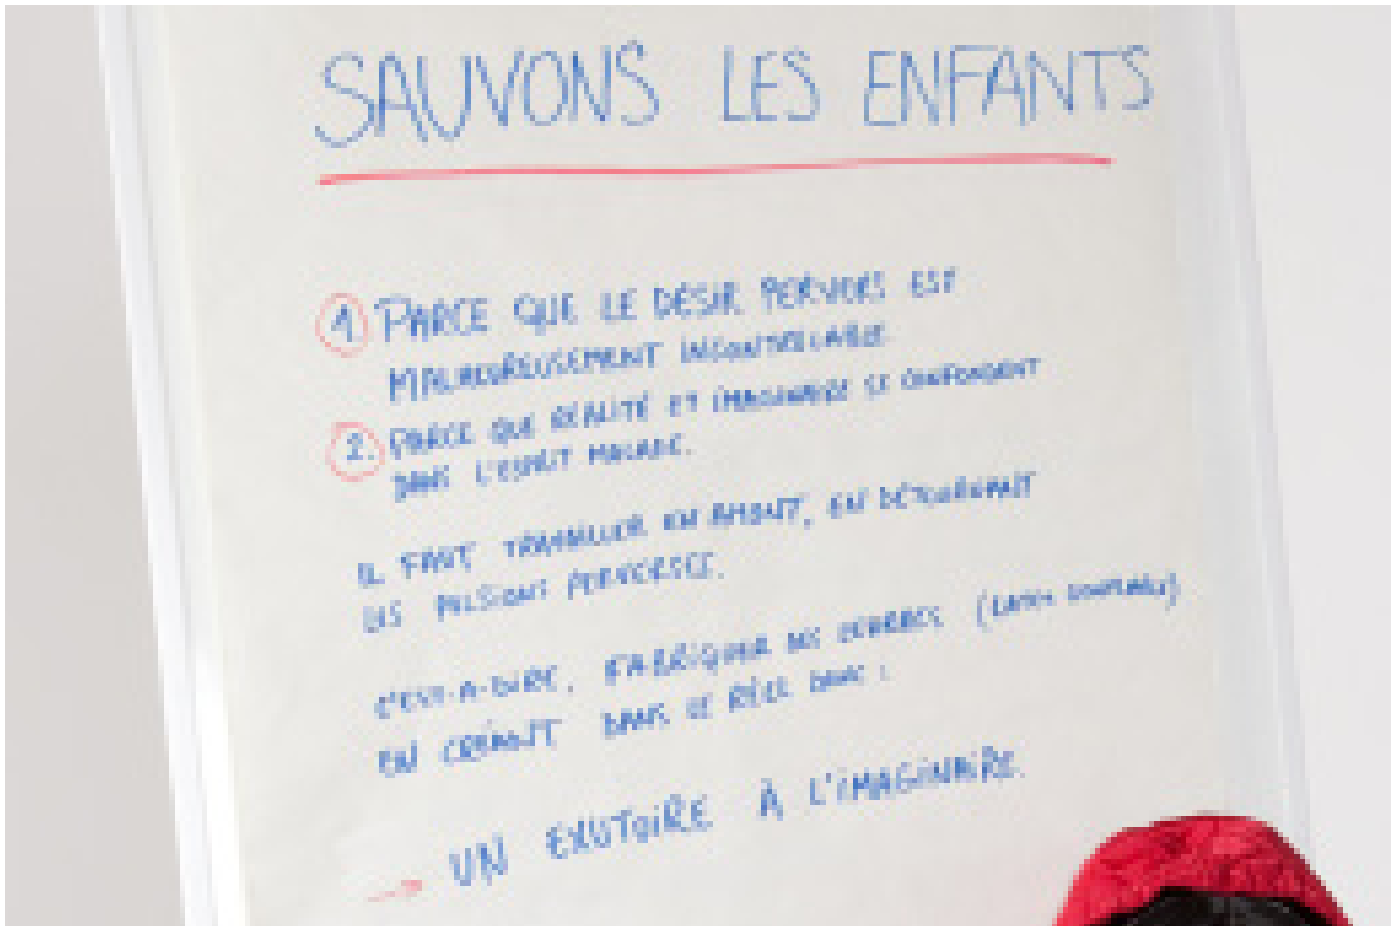 SAUVONS LES ENFANTS
1. PARCE QUE LE DÉSIR PERVERS EST
MALHEUREUSEMENT INCONTRÔLABLE.
2. PARCE QUE RÉALITÉ ET IMAGINAIRE SE CONFONDENT
DANS L'ESPRIT MALADE.
IL FAUT TRAVAILLER EN AMONT, EN DÉTOURNANT
LES PULSIONS PERVERSES.
C'EST-À-DIRE, FABRIQUER DES LEURRES
EN CRÉANT DANS LE RÉEL DONC :
→ UN EXUTOIRE À L'IMAGINAIRE.